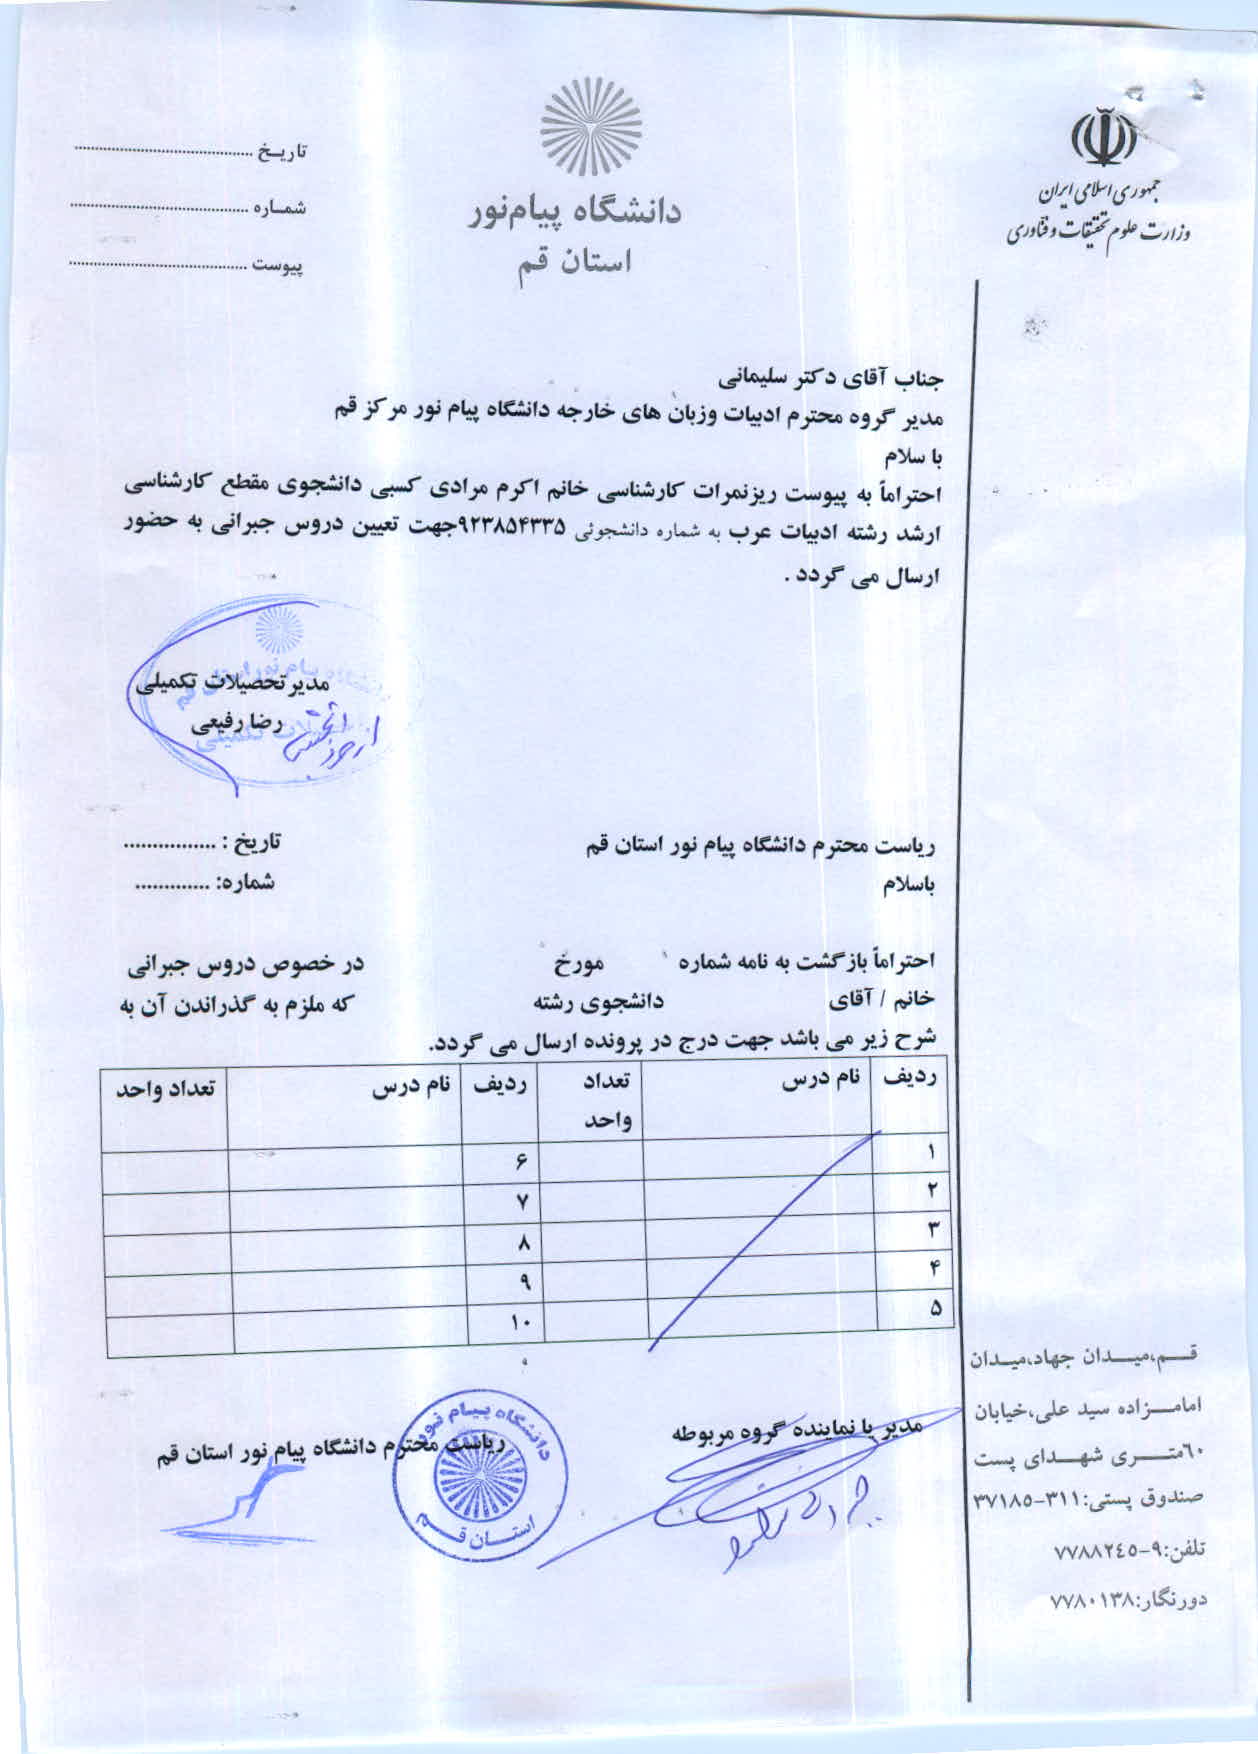 جمهوری اسلامی ایران
وزارت علوم تحقیقات و فناوری
دانشگاه پیام‌نور
استان قم
تاریــخ ........................................
شمــاره ........................................
پیوست ........................................
جناب آقای دکتر سلیمانی
مدیر گروه محترم ادبیات وزبان های خارجه دانشگاه پیام نور مرکز قم
با سلام
احتراماً به پیوست ریزنمرات کارشناسی خانم اکرم مرادی کسبی دانشجوی مقطع کارشناسی
ارشد رشته ادبیات عرب به شماره دانشجوئی ۹۲۳۸۵۴۳۳۵جهت تعیین دروس جبرانی به حضور
ارسال می گردد .
مدیرتحصیلات تکمیلی
رضا رفیعی
ریاست محترم دانشگاه پیام نور استان قم
تاریخ : ................
باسلام
شماره: .............
احتراماً بازگشت به نامه شماره مورخ در خصوص دروس جبرانی
خانم / آقای دانشجوی رشته که ملزم به گذراندن آن به
شرح زیر می باشد جهت درج در پرونده ارسال می گردد.
ردیف نام درس تعداد واحد ردیف نام درس تعداد واحد
۱ ۶
۲ ۷
۳ ۸
۴ ۹
۵ ۱۰
مدیر یا نماینده گروه مربوطه
ریاست محترم دانشگاه پیام نور استان قم
دانشگاه پیـام نور
استــان قــم
قــم،میــدان جهاد،میـدان
امامــزاده سید علی،خیابان
٦٠متــری شهــدای پست
صندوق پستی:۳۱۱-۳۷۱۸۵
تلفن:۹-۷۷۸۸۲٤٥
دورنگار:۷۷۸۰۱۳۸